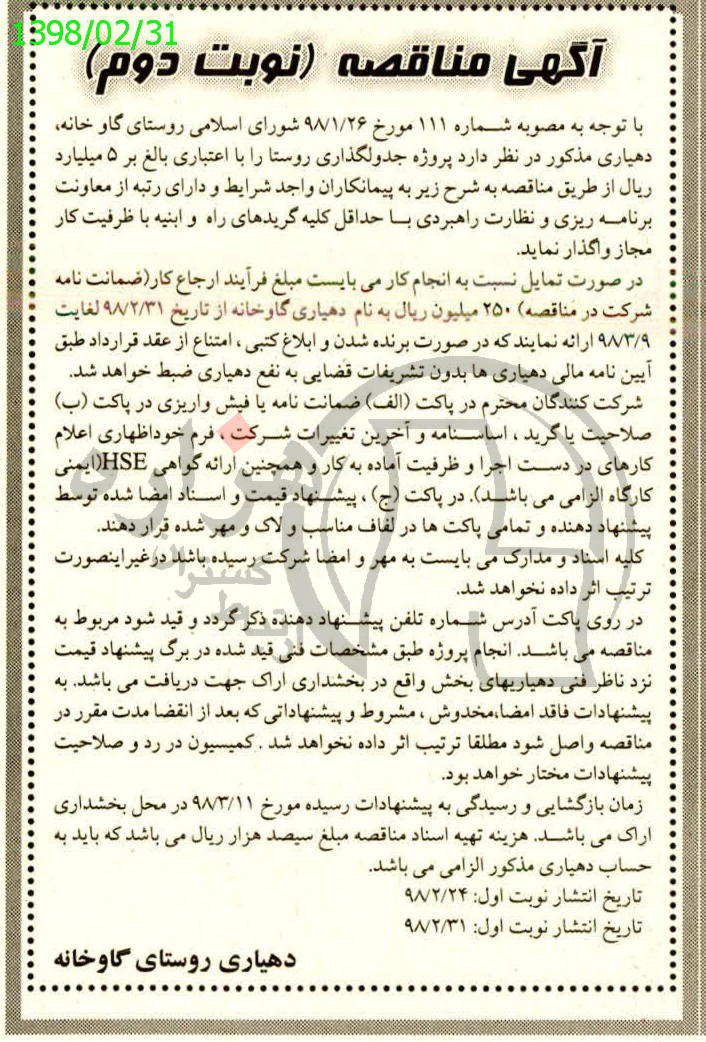 1398/02/31
آگهی مناقصه (نوبت دوم)
با توجه به مصوبه شماره ۱۱۱ مورخ ۹۸/۱/۲۶ شورای اسلامی روستای گاو خانه،
دهیاری مذکور در نظر دارد پروژه جدولگذاری روستا را با اعتباری بالغ بر ۵ میلیارد
ریال از طریق مناقصه به شرح زیر به پیمانکاران واجد شرایط و دارای رتبه از معاونت
برنامه ریزی و نظارت راهبردی با حداقل کلیه گریدهای راه و ابنیه با ظرفیت کار
مجاز واگذار نماید.
در صورت تمایل نسبت به انجام کار می بایست مبلغ فرآیند ارجاع کار(ضمانت نامه
شرکت در مناقصه) ۲۵۰ میلیون ریال به نام دهیاری گاوخانه از تاریخ ۹۸/۲/۳۱ لغایت
۹۸/۳/۹ ارائه نمایند که در صورت برنده شدن و ابلاغ کتبی ، امتناع از عقد قرارداد طبق
آیین نامه مالی دهیاری ها بدون تشریفات قضایی به نفع دهیاری ضبط خواهد شد.
شرکت کنندگان محترم در پاکت (الف) ضمانت نامه یا فیش واریزی در پاکت (ب)
صلاحیت یا گرید ، اساسنامه و آخرین تغییرات شرکت ، فرم خوداظهاری اعلام
کارهای در دست اجرا و ظرفیت آماده به کار و همچنین ارائه گواهی HSE(ایمنی
کارگاه الزامی می باشد). در پاکت (ج) ، پیشنهاد قیمت و اسناد امضا شده توسط
پیشنهاد دهنده و تمامی پاکت ها در لفاف مناسب و لاک و مهر شده قرار دهند.
کلیه اسناد و مدارک می بایست به مهر و امضا شرکت رسیده باشد درغیراینصورت
ترتیب اثر داده نخواهد شد.
در روی پاکت آدرس شماره تلفن پیشنهاد دهنده ذکر گردد و قید شود مربوط به
مناقصه می باشد. انجام پروژه طبق مشخصات فنی قید شده در برگ پیشنهاد قیمت
نزد ناظر فنی دهیاریهای بخش واقع در بخشداری اراک جهت دریافت می باشد. به
پیشنهادات فاقد امضا،مخدوش ، مشروط و پیشنهاداتی که بعد از انقضا مدت مقرر در
مناقصه واصل شود مطلقا ترتیب اثر داده نخواهد شد . کمیسیون در رد و صلاحیت
پیشنهادات مختار خواهد بود.
زمان بازگشایی و رسیدگی به پیشنهادات رسیده مورخ ۹۸/۳/۱۱ در محل بخشداری
اراک می باشد. هزینه تهیه اسناد مناقصه مبلغ سیصد هزار ریال می باشد که باید به
حساب دهیاری مذکور الزامی می باشد.
تاریخ انتشار نوبت اول: ۹۸/۲/۲۴
تاریخ انتشار نوبت اول: ۹۸/۲/۳۱
دهیاری روستای گاوخانه